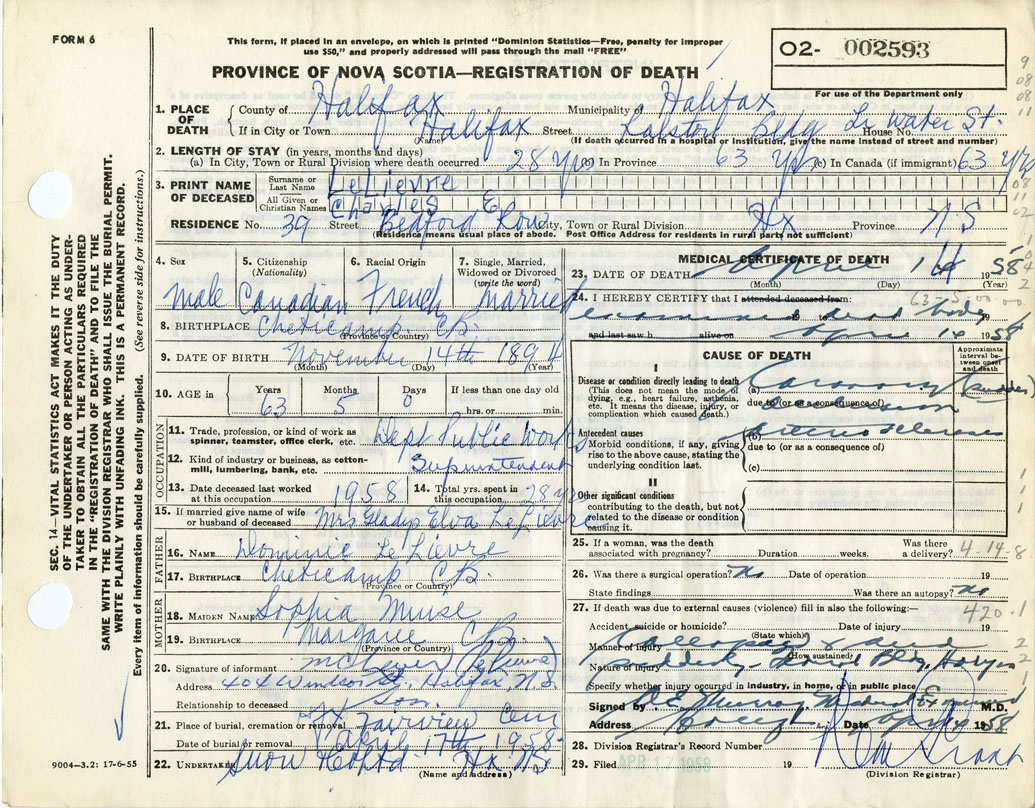 FORM 6
This form, if placed in an envelope, on which is printed "Dominion Statistics—Free, penalty for improper
use $50," and properly addressed will pass through the mail "FREE"
PROVINCE OF NOVA SCOTIA—REGISTRATION OF DEATH
O2- 002593
For use of the Department only
SEC. 14—VITAL STATISTICS ACT MAKES IT THE DUTY
OF THE UNDERTAKER OR PERSON ACTING AS UNDER-
TAKER TO OBTAIN ALL THE PARTICULARS REQUIRED
IN THE "REGISTRATION OF DEATH" AND TO FILE THE
SAME WITH THE DIVISION REGISTRAR WHO SHALL ISSUE THE BURIAL PERMIT.
WRITE PLAINLY WITH UNFADING INK. THIS IS A PERMANENT RECORD.
Every item of information should be carefully supplied. (See reverse side for instructions.)
9004—3.2: 17-6-55
1. PLACE OF DEATH County of Halifax Municipality of Halifax
If in City or Town Halifax Street Ralston Bldg Lr Water St. House No.
(Name) (If death occurred in a hospital or institution, give the name instead of street and number)
2. LENGTH OF STAY (in years, months and days)
(a) In City, Town or Rural Division where death occurred 28 yrs (b) In Province 63 yrs (c) In Canada (if immigrant) 63 yrs
3. PRINT NAME OF DECEASED
Surname or Last Name LeLievre
All Given or Christian Names Charles E
RESIDENCE No. 39 Street Bedford Row City, Town or Rural Division Hx Province N.S
(Residence means usual place of abode. Post Office Address for residents in rural parts not sufficient)
4. Sex
Male
5. Citizenship (Nationality)
Canadian
6. Racial Origin
French
7. Single, Married, Widowed or Divorced (write the word)
Married
8. BIRTHPLACE Cheticamp C.B.
(Province or Country)
9. DATE OF BIRTH November 14th 1894
(Month) (Day) (Year)
10. AGE in Years Months Days If less than one day old
63 5 0 hrs. or min.
OCCUPATION
11. Trade, profession, or kind of work as spinner, teamster, office clerk, etc. Dept Public Works
12. Kind of industry or business, as cotton-mill, lumbering, bank, etc. Superintendent
13. Date deceased last worked at this occupation 1958
14. Total yrs. spent in this occupation 28 yrs
15. If married give name of wife or husband of deceased Mrs Gladys Elva LeLievre
FATHER
16. NAME Dominic LeLievre
17. BIRTHPLACE Cheticamp C.B.
(Province or Country)
MOTHER
18. MAIDEN NAME Sophia Muise
19. BIRTHPLACE Margaree C.B.
(Province or Country)
20. Signature of informant
Address 404 Windsor St., Halifax, N.S.
Relationship to deceased son.
21. Place of burial, cremation or removal Hx Fairview Cem
Date of burial or removal April 17th 1958
22. UNDERTAKER Snow Hx N.S.
(Name and address)
MEDICAL CERTIFICATE OF DEATH
23. DATE OF DEATH April 14 1958
(Month) (Day) (Year)
24. I HEREBY CERTIFY that I attended deceased from:
examined dead body
and last saw h alive on April 14 1958
CAUSE OF DEATH
Approximate interval between onset and death
I
Disease or condition directly leading to death
(This does not mean the mode of dying, e.g., heart failure, asthenia, etc. It means the disease, injury, or complication which caused death.)
(a) Coronary (sudden)
due to (or as a consequence of) occlusion
Antecedent causes
Morbid conditions, if any, giving rise to the above cause, stating the underlying condition last.
(b) Arteriosclerosis
due to (or as a consequence of)
(c)
II
Other significant conditions
contributing to the death, but not related to the disease or condition causing it.
25. If a woman, was the death associated with pregnancy? Duration weeks. Was there a delivery? 4-14-8
26. Was there a surgical operation? no Date of operation 19
State findings Was there an autopsy? no
27. If death was due to external causes (violence) fill in also the following:— 420.1
Accident, suicide or homicide? Date of injury 19
(State which)
Manner of injury Collapsed
(How sustained)
Nature of injury suddenly
Specify whether injury occurred in industry, in home, or in public place
Signed by Murray Medical Examiner M.D.
Address Date April 14 1958
28. Division Registrar's Record Number
29. Filed APR 17 1958 19
(Division Registrar)